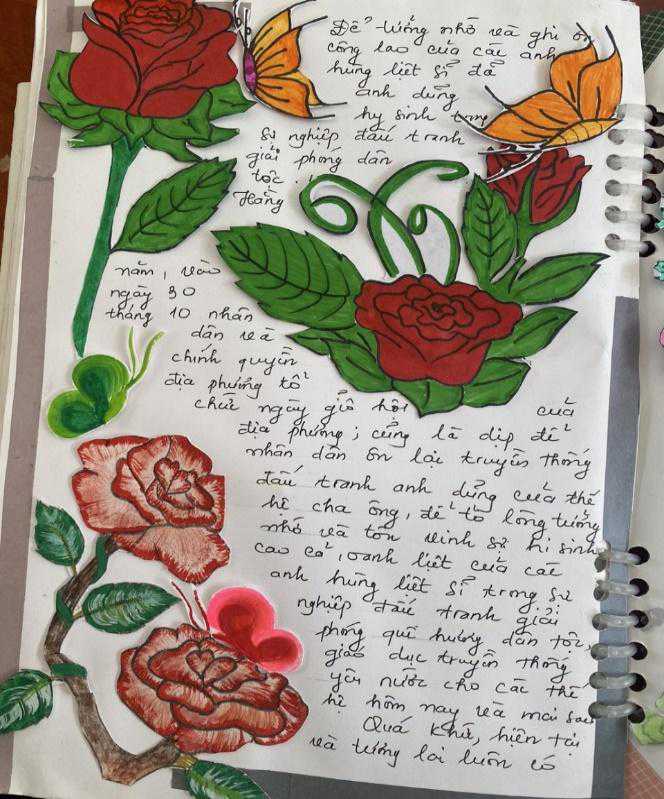 Để tưởng nhớ và ghi ơn
công lao của các anh
hùng liệt sĩ đã
anh dũng
hy sinh trong
sự nghiệp đấu tranh
giải phóng dân
tộc.
Hằng
năm, vào
ngày 30
tháng 10 nhân
dân và
chính quyền
địa phương tổ
chức ngày giỗ hội của
địa phương; cũng là dịp để
nhân dân ôn lại truyền thống
đấu tranh anh dũng của thế
hệ cha ông, để tỏ lòng tưởng
nhớ và tôn vinh sự hi sinh
cao cả, oanh liệt của các
anh hùng liệt sĩ trong sự
nghiệp đấu tranh giải
phóng quê hương dân tộc,
giáo dục truyền thống
yêu nước cho các thế
hệ hôm nay và mai sau
Quá khứ, hiện tại
và tương lai luôn có